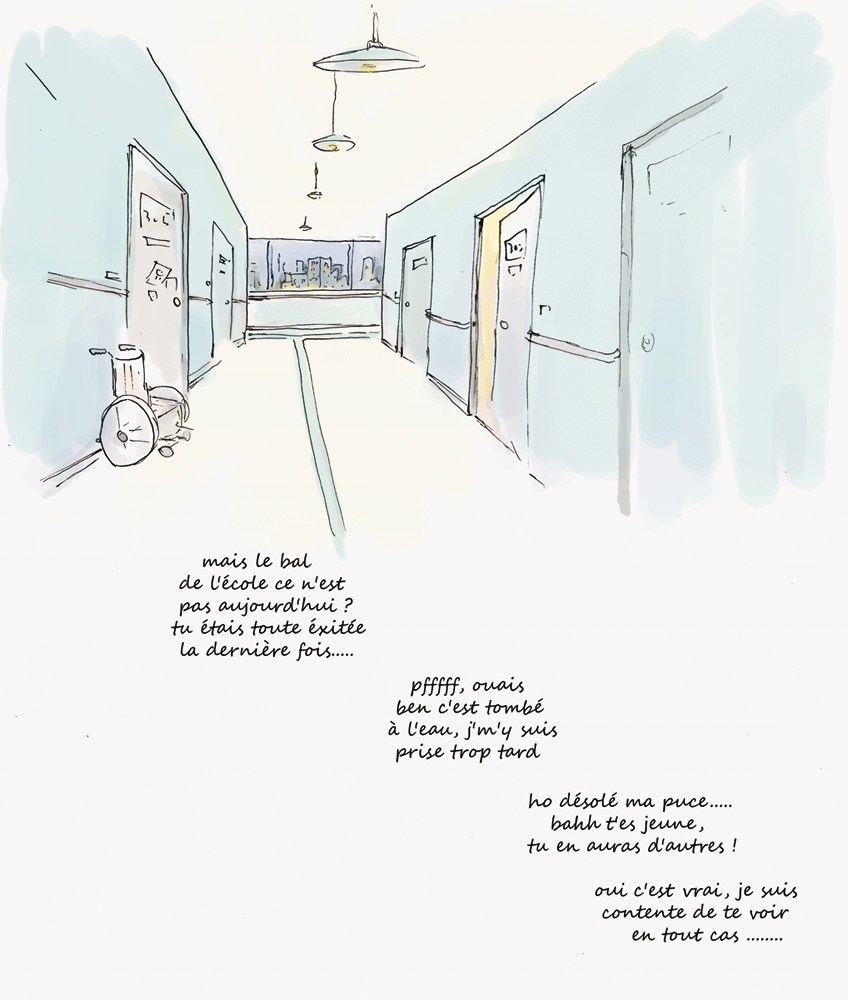 mais le bal
de l'école ce n'est
pas aujourd'hui ?
tu étais toute éxitée
la dernière fois.....
pfffff, ouais
ben c'est tombé
à l'eau, j'm'y suis
prise trop tard
ho désolé ma puce.....
bahh t'es jeune,
tu en auras d'autres !
oui c'est vrai, je suis
contente de te voir
en tout cas ........